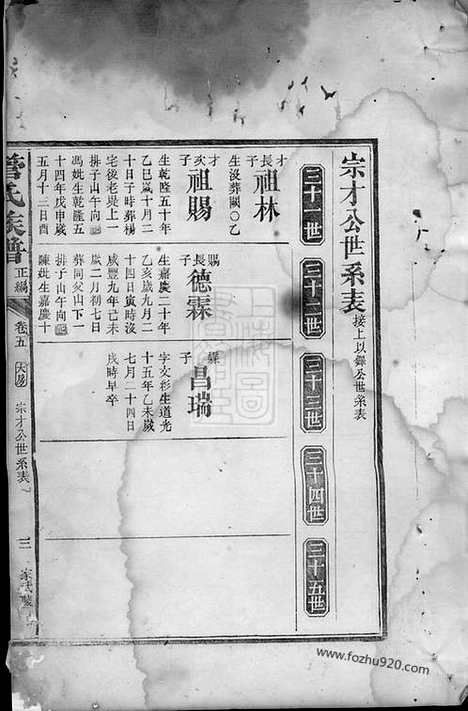 宗才公世系表 接上以彝公世系表
三十一世
三十二世
三十三世
三十四世
三十五世
才長子 祖林
生沒葬闕〇乙
才次子 祖賜
生乾隆五十年
乙巳歲十月二
十日子時葬楊
宅後老堤上一
排子山午向
馮妣生乾隆五
十四年戊申歲
五月十三日酉
賜長子 德霖
生嘉慶二十年
乙亥歲九月二
十四日寅時沒
咸豐九年己未
歲二月初七日
葬同父山下一
排子山午向
陳妣生嘉慶十
霖子 昌瑞
字友彩生道光
十五年乙未歲
七月二十四日
戌時早卒
管氏族譜 正編 卷五 宗才公世系表 三
www.fozhu920.com